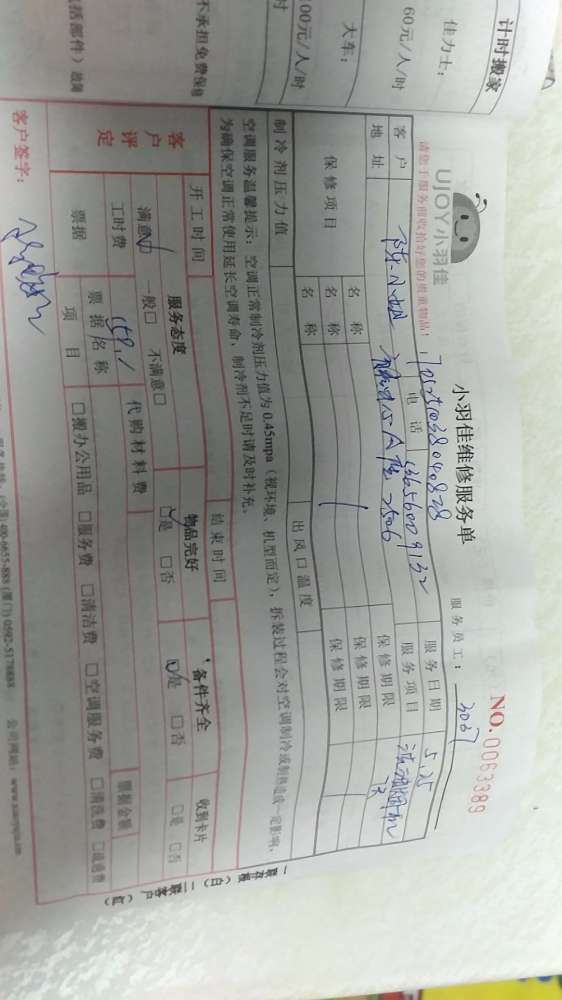 计时搬家
佳力士：
60元/人/时
大车：
100元/人/时
不承担免费保修
括部件）故障
UJOY小羽佳
请您于服务前收拾好您的贵重物品！
小羽佳维修服务单
服务员工：3067
NO.0063389
客户
陈小姐
电话
13656009132
服务日期
5.25
地址
服务项目
保修项目
名称
保修期限
名称
保修期限
名称
保修期限
制冷剂压力值
出风口温度
空调服务温馨提示：空调正常制冷剂压力值为0.45mpa（视环境、机型而定），拆装过程会对空调制冷或制热造成一定影响，
为确保空调正常使用延长空调寿命，制冷剂不足时请及时补充。
开工时间
结束时间
客户评定
服务态度
物品完好
备件齐全
收到卡片
满意☑ 一般□ 不满意□
☑是 □否
☑是 □否
□是 □否
工时费
158.1
代购材料费
票据
票据名称
票据金额
项目
□搬办公用品 □服务费 □清洁费 □空调服务费 □清洗费 □疏通费
客户签字：
400-6655-888 (厦门) 0592-5178888 公司网站：
一联存根（白） 二联客户（红）